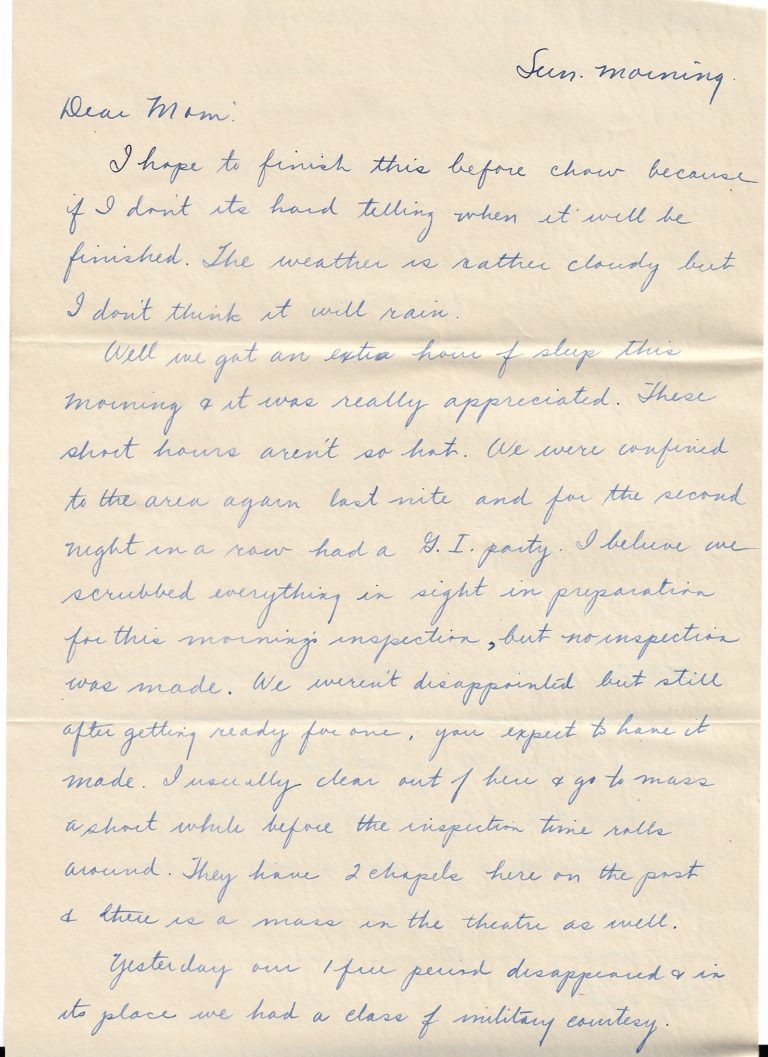 Sun. morning.
Dear Mom:
I hope to finish this before chow because
if I don't its hard telling when it will be
finished. The weather is rather cloudy but
I don't think it will rain.
Well we got an extra hour of sleep this
morning & it was really appreciated. These
short hours aren't so hot. We were confined
to the area again last nite and for the second
night in a row had a G.I. party. I believe we
scrubbed everything in sight in preparation
for this morning's inspection, but no inspection
was made. We weren't disappointed but still
after getting ready for one, you expect to have it
made. I usually clear out of here & go to mass
a short while before the inspection time rolls
around. They have 2 chapels here on the post
& there is a mass in the theatre as well.
Yesterday our 1 free period disappeared & in
its place we had a class of military courtesy.